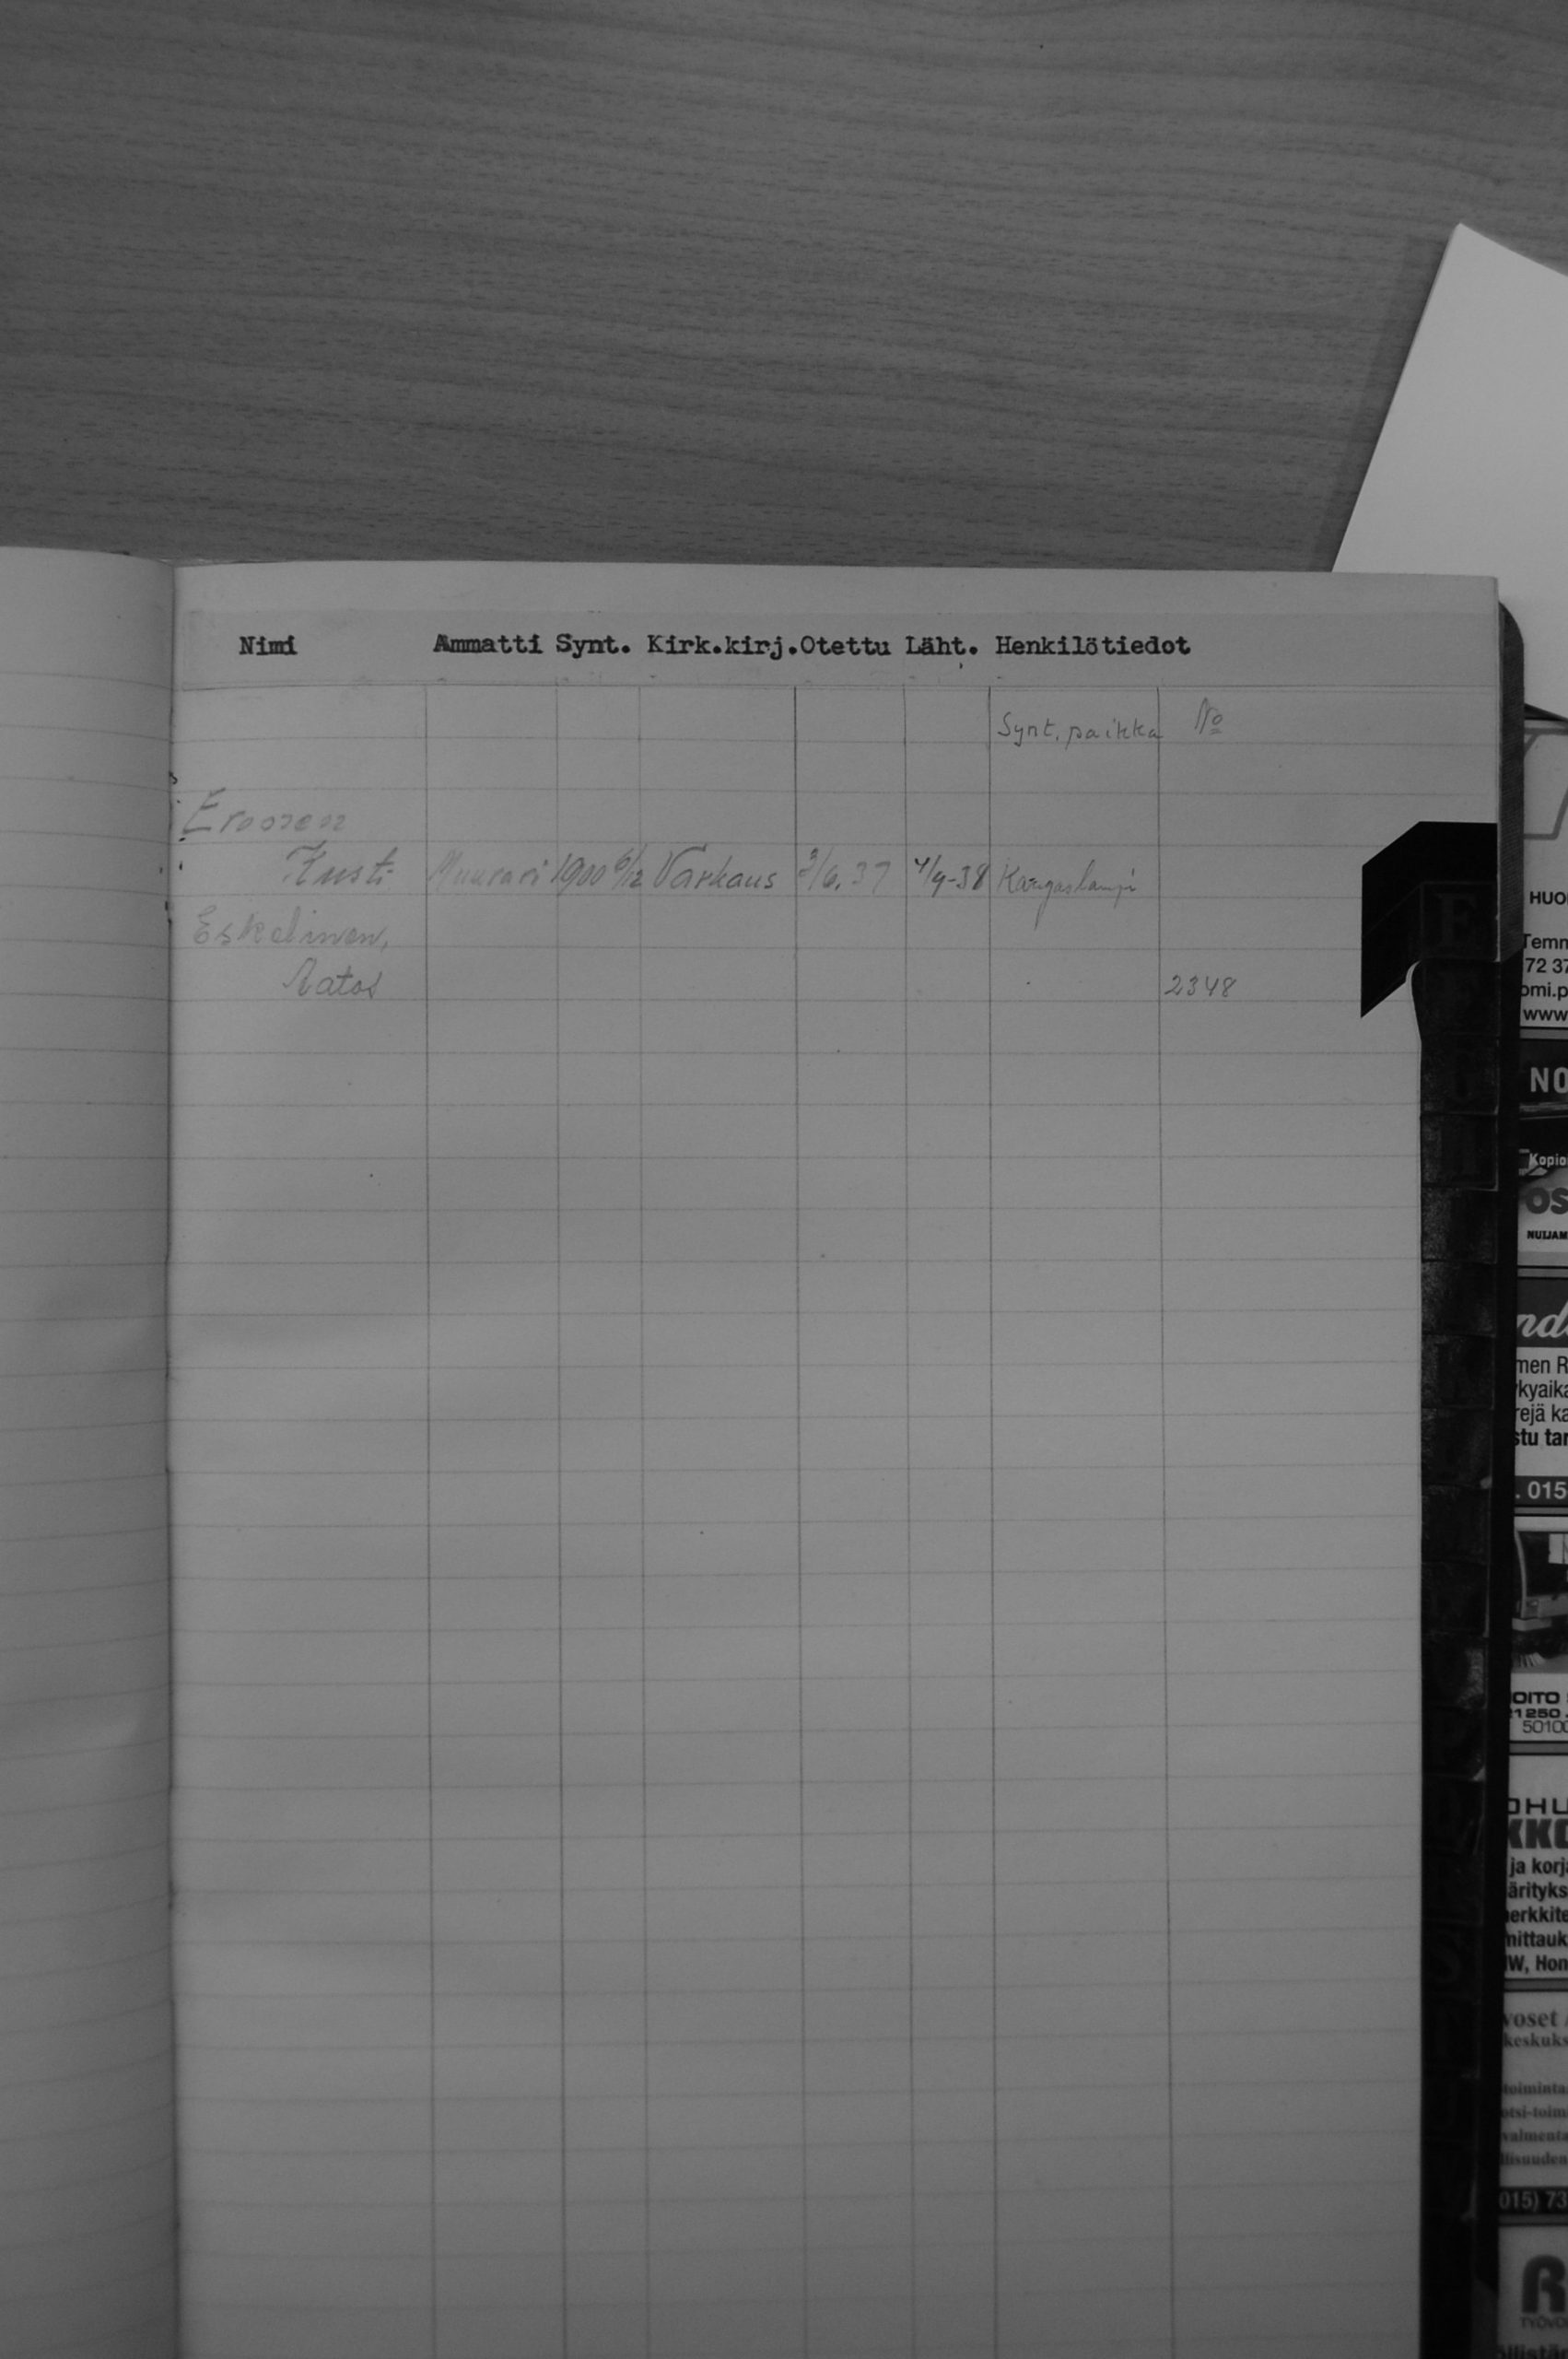 Nimi Ammatti Synt. Kirk.kirj. Otettu Läht. Henkilötiedot
Synt. paikka No
Eronen
Kusti Muurari 1900 6/12 Varkaus 3/6.37 4/9-38 Kangaslampi
Eskelinen,
Aatos 2348
E
HUO
Temm
72 37
omi.p
www
NO
Kopio
OS
NUIJAM
nd
men R
kyaika
rejä ka
stu tar
. 015
OITO
1250
5010
OHU
KKO
ja korj
ärityks
erkkite
nittauk
W, Hon
voset
keskuks
toiminta
otsi-toim
valmenta
llisuuden
015) 73
R